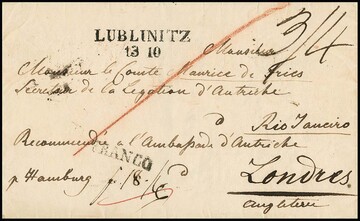 LUBLINITZ
13 10
3/4
Monsieur
Monsieur le Comte Maurice de Fries
Secrétaire de la Légation d'Autriche
à
Rio Janeiro
Recommendée à l'Ambassade d'Autriche
FRANCO
à
p Hamburg
Londres
Angleterre